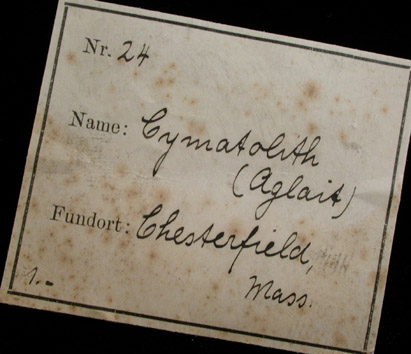 Nr. 24
Name: Cymatolith
(Aglait)
Fundort: Chesterfield,
Mass.
1.-